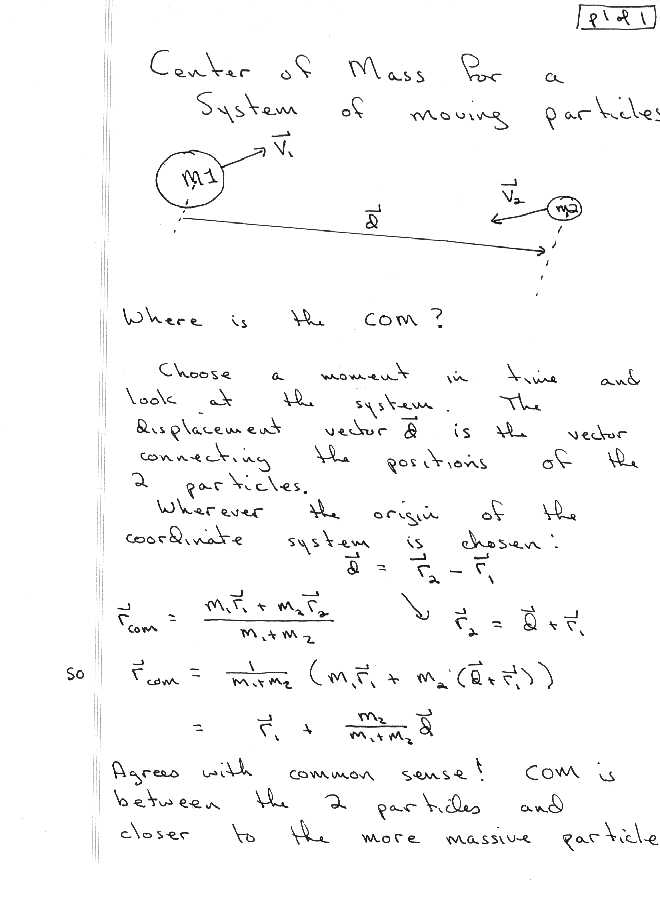 p1 of 1
Center of Mass for a
System of moving particles
m1
v⃗₁
v⃗₂
m2
d⃗
Where is the COM?
Choose a moment in time and
look at the system. The
displacement vector d⃗ is the vector
connecting the positions of the
2 particles.
Wherever the origin of the
coordinate system is chosen:
d⃗ = r⃗₂ - r⃗₁
r⃗com = (m₁r⃗₁ + m₂r⃗₂)/(m₁+m₂) ↘ r⃗₂ = d⃗ + r⃗₁
so r⃗com = 1/(m₁+m₂) (m₁r⃗₁ + m₂(d⃗+r⃗₁))
= r⃗₁ + m₂/(m₁+m₂) d⃗
Agrees with common sense! COM is
between the 2 particles and
closer to the more massive particle